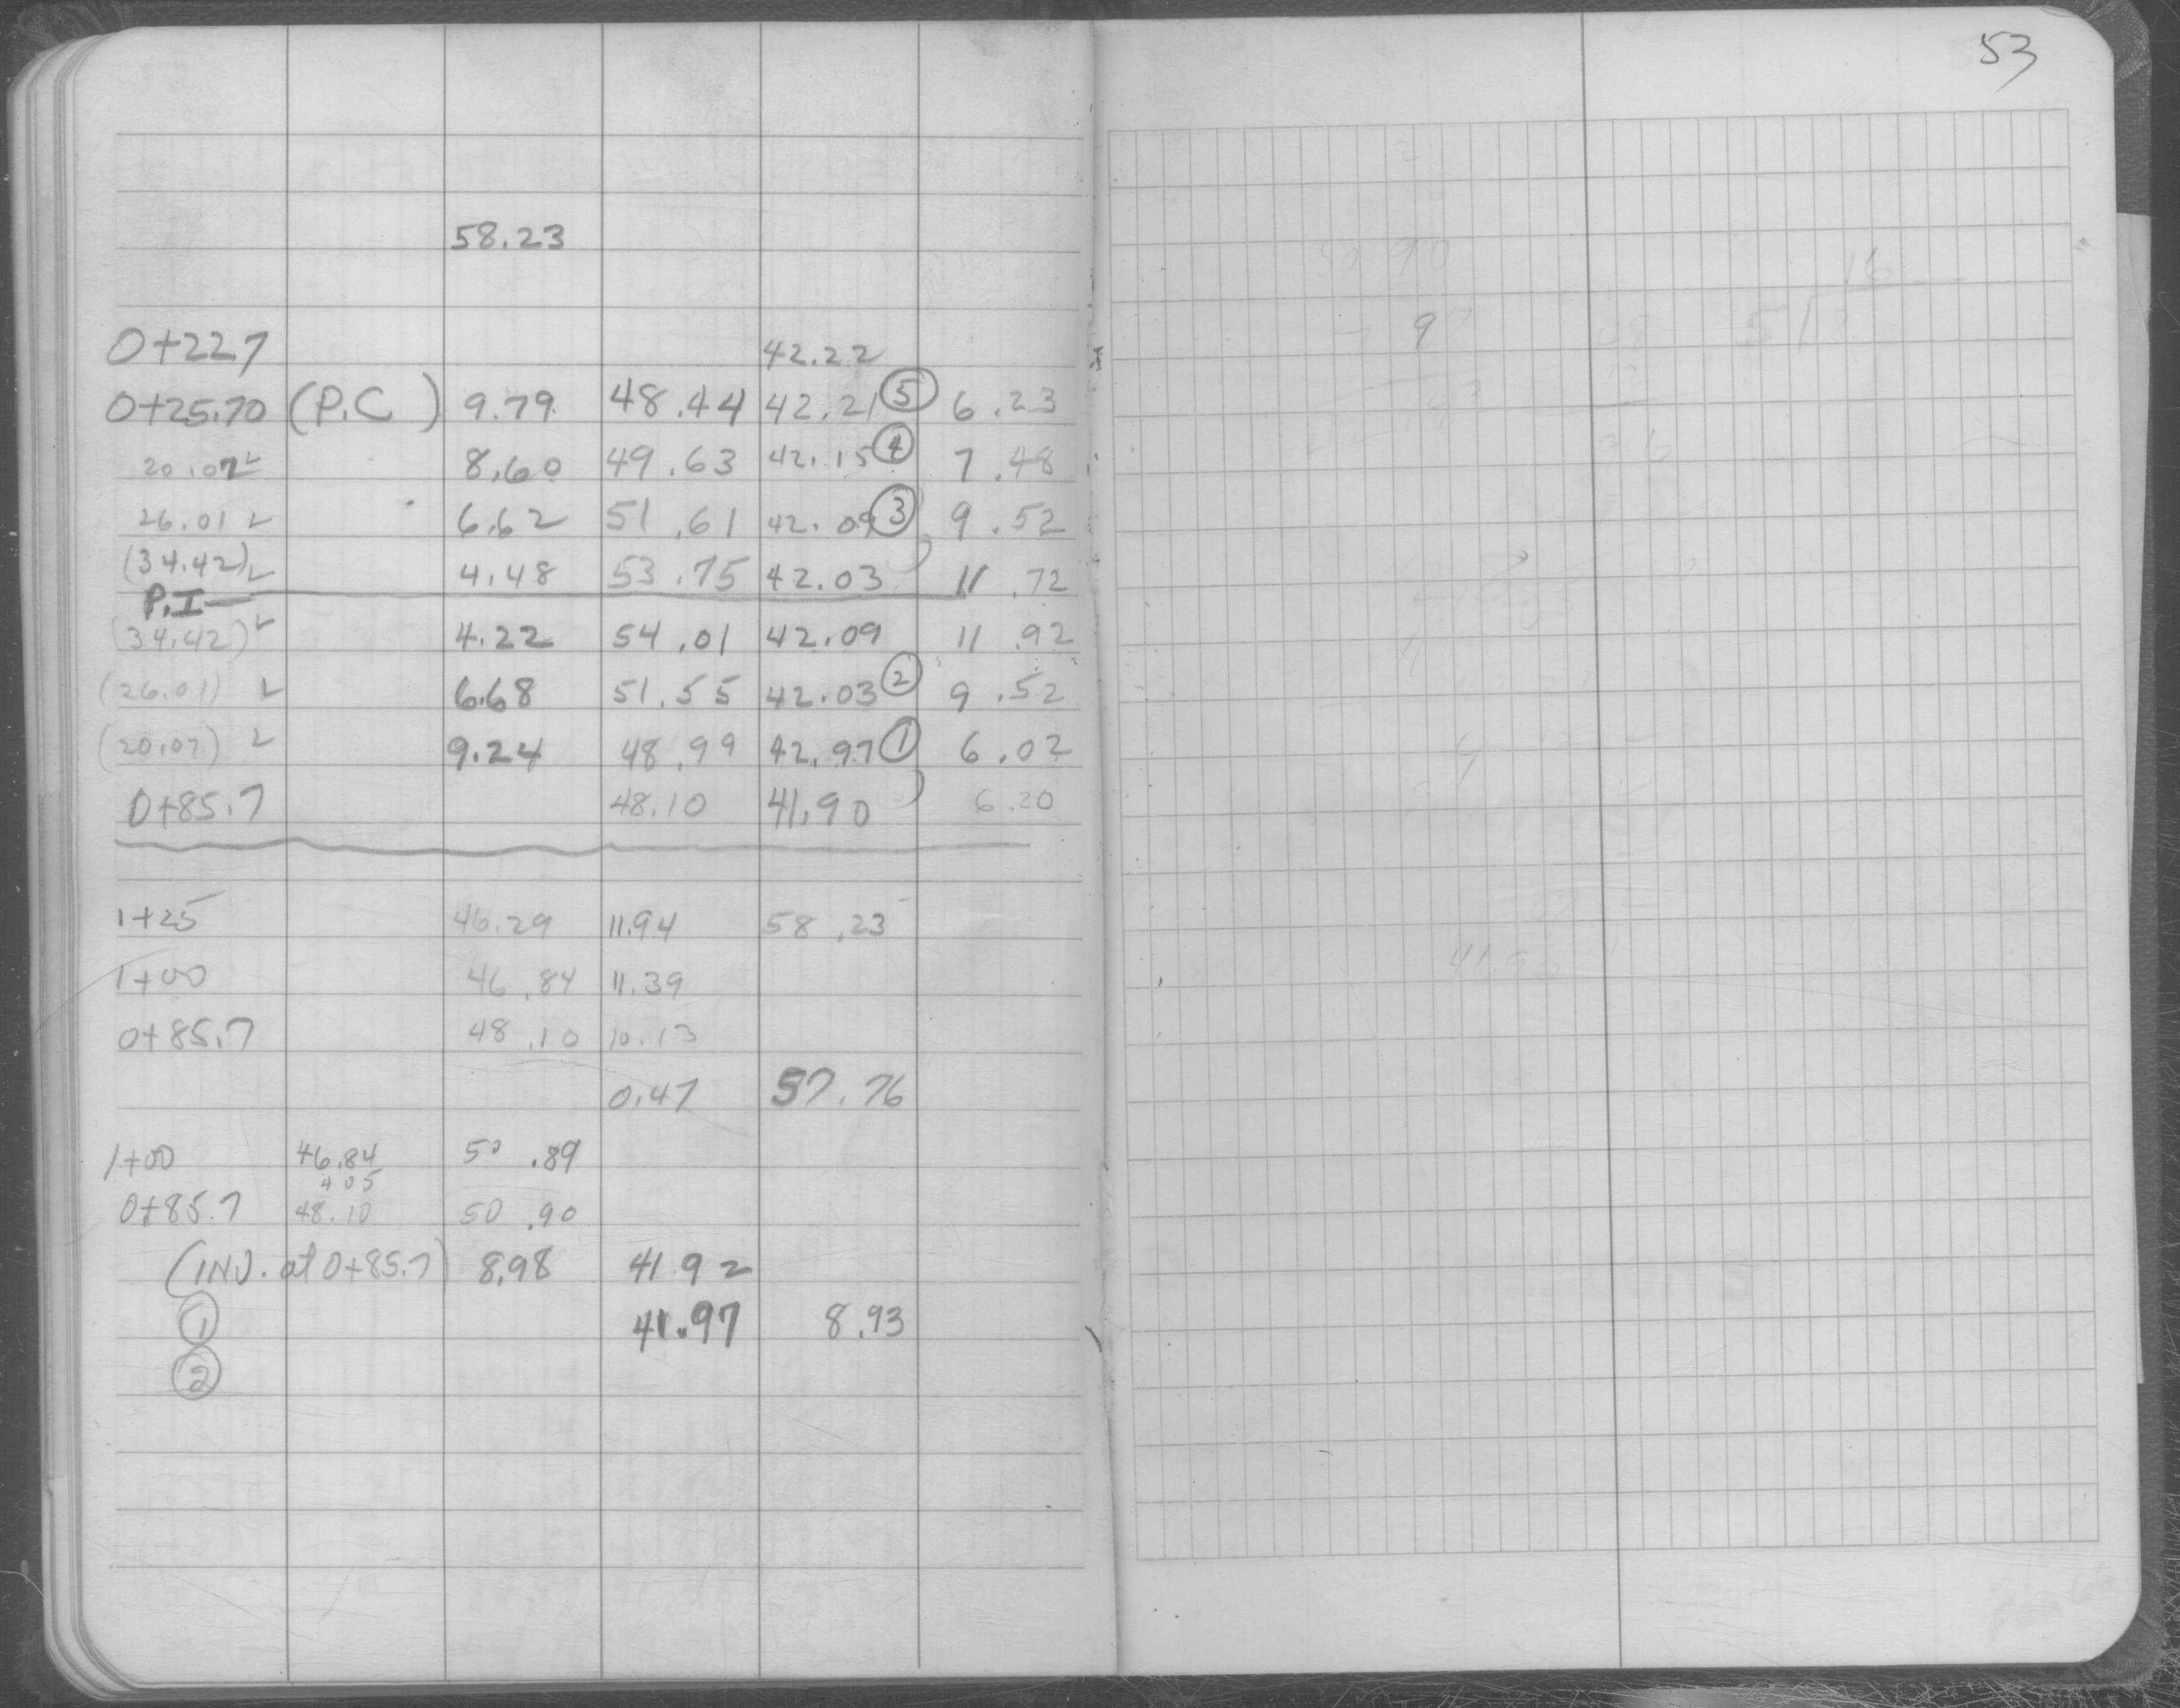 53
58.23
0+22.7 42.22
0+25.70 (P.C) 9.79 48.44 42.21 ⑤ 6.23
20.07 L 8.60 49.63 42.15 ④ 7.48
26.01 L 6.62 51.61 42.09 ③ 9.52
(34.42) L 4.48 53.75 42.03 11.72
P.I
(34.42) L 4.22 54.01 42.09 11.92
(26.01) L 6.68 51.55 42.03 ② 9.52
(20.07) L 9.24 48.99 42.97 ① 6.02
0+85.7 48.10 41.90 6.20
1+25 46.29 11.94 58.23
1+00 46.84 11.39
0+85.7 48.10 10.13
0.47 57.76
1+00 46.84 50.89
405
0+85.7 48.10 50.90
(INV. at 0+85.7) 8.98 41 92
① 41.97 8.93
②